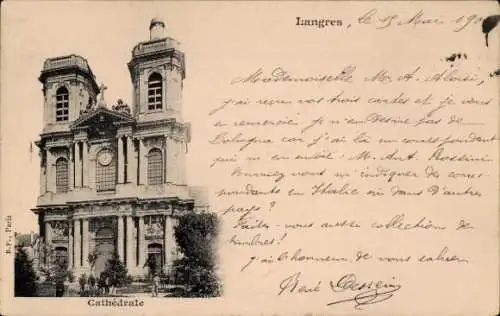 Langres, le 15 Mai 190
Mademoiselle M. A. Aloisi,
j'ai reçu vos trois cartes et je vous
en remercie, je n'en désire pas de
Bologna car j'ai là un correspondant
qui m'en envoie! M. Ant. Rossini
Pourriez vous m'indiquer des corres-
pondants en Italie où dans d'autres
pays?
Faites-vous aussi collection de
timbres!
j'ai l'honneur de vous saluer
René
B.F., Paris
Cathédrale